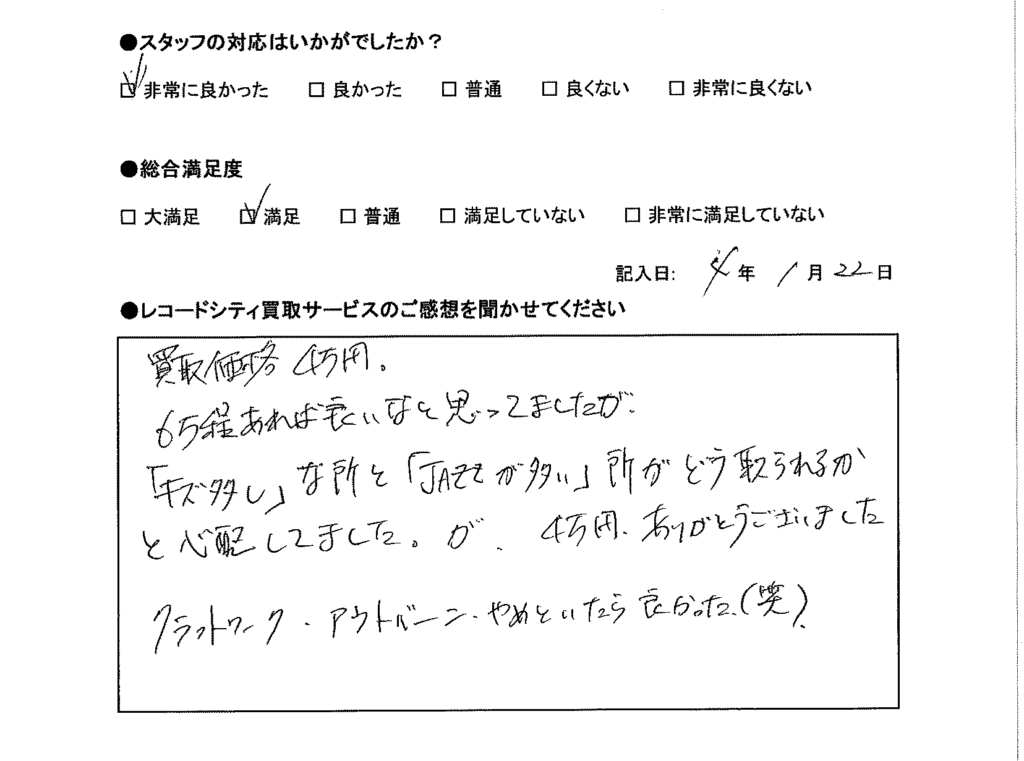 ●スタッフの対応はいかがでしたか？
☑ 非常に良かった □ 良かった □ 普通 □ 良くない □ 非常に良くない
●総合満足度
□ 大満足 ☑ 満足 □ 普通 □ 満足していない □ 非常に満足していない
記入日: 4年 1月22日
●レコードシティ買取サービスのご感想を聞かせてください
買取価格 4万円。
6万程あれば良いなと思ってましたが、
「キズ多し」な所と「JAZZが多い」所がどう取られるか
と心配してました。が、4万円、ありがとうございました
クラフトワーク・アウトバーン・やめといたら良かった、(笑)。